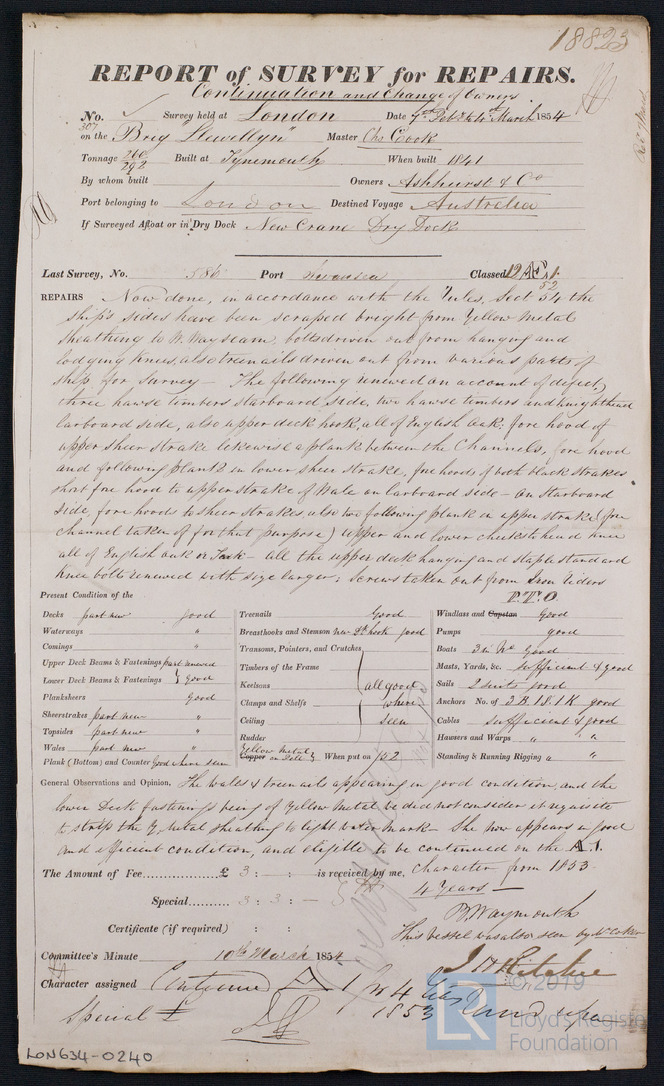 18823
REPORT of SURVEY for REPAIRS.
Continuation and Change of Owners
No. Survey held at London Date 7th Feb to 4th March 1854
307
on the Brig "Llewellyn" Master Chs Cook
Tonnage 260 Built at Tynemouth When built 1841
292
By whom built Owners Ashhurst & Co
Port belonging to London Destined Voyage Australia
If Surveyed Afloat or in Dry Dock New Crane Dry Dock
Last Survey, No. 586 Port Swansea Classed 12 A.1.
52
REPAIRS Now done, in accordance with the Rules, Sect 54 the
ship's sides have been scraped bright from Yellow Metal
sheathing to W. Way seam, bolts driven out from hanging and
lodging Knees, also treenails driven out from various parts of
ship for Survey — The following renewed on account of defect,
three hawse timbers starboard side, two hawse timbers and knighthead
larboard side, also upper deck hook, all of English Oak: fore hood of
upper sheer strake likewise a plank between the Channels, fore hood
and following plank in lower sheer strake, fore hoods of both black strakes
short fore hood to upper strake of Wale on larboard side — On starboard
side, fore hoods to sheer strakes, also two following plank in upper strake (fore
channel taken off for that purpose) upper and lower cheeks & head knee
all of English oak or Teak — all the upper deck hanging and staple standard
Knee bolts renewed with size larger; Screws taken out from Iron Riders
P.T.O
Present Condition of the
Decks part new good
Waterways "
Comings "
Upper Deck Beams & Fastenings part renewed
Lower Deck Beams & Fastenings } good
Planksheers Good
Sheerstrakes part new "
Topsides part new "
Wales part new "
Plank (Bottom) and Counter Good where seen
Treenails Good
Breasthooks and Stemson new Dk hook good
Transoms, Pointers, and Crutches
Timbers of the Frame
Keelsons all good
Clamps and Shelfs where
Ceiling seen
Rudder
Yellow Metal
Copper on Felt When put on /52
Windlass and Capstan Good
Pumps good
Boats 3 in No Good
Masts, Yards, &c. sufficient & good
Sails 2 suits good
Anchors No. of 3 B. 1 S. 1 K good
Cables sufficient & good
Hawsers and Warps " "
Standing & Running Rigging " "
General Observations and Opinion. The wales & treenails appearing in good condition, and the
lower Deck fastenings being of Yellow Metal we did not consider it requisite
to strip the Y. Metal sheathing to light water mark — She now appears in good
and efficient condition, and eligible to be continued on the A.1.
The Amount of Fee £ 3 : : is received by me, character from 1853
4 years —
Special 3 : 3 : —
B. Waymouth
Certificate (if required) : :
This vessel was also seen by Mr
Committee's Minute 10th March 1854
J H Ritchie
Character assigned Continued A 1 for 4 Years
1853
Special £
LON634-0240
LR
© 2019
Lloyd's Register
Foundation